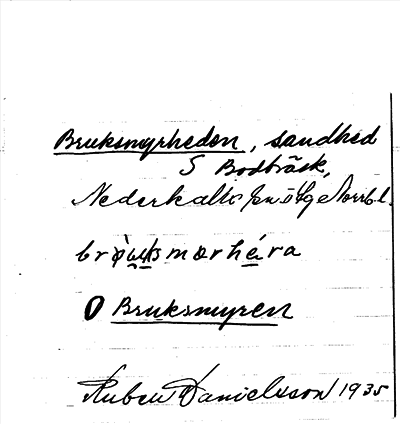 Bruksmyrheden, sandhed
S Bodträsk,
Nederkalix sn Norrb.l.
bròu̯ksmørhéra
O Bruksmyren
Ruben Danielsson 1935